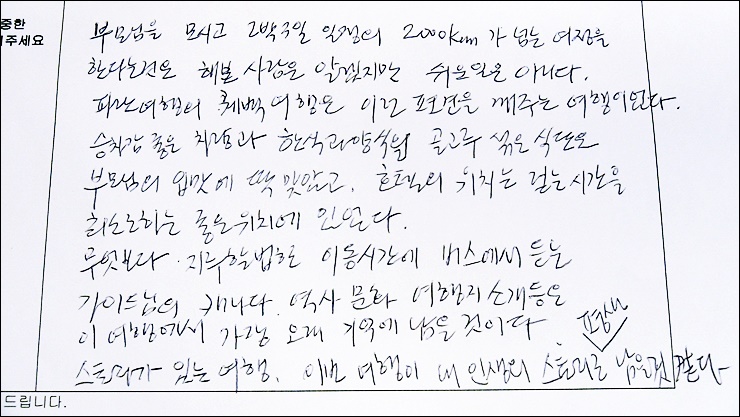 중한
주세요
부모님을 모시고 2박3일 일정의 2000km가 넘는 여정을
한다는건은 해본 사람은 알겠지만 쉬운일은 아니다.
파란여행의 퀘백여행은 이런 편견을 깨주는 여행이었다.
승차감 좋은 차량과 한식과양식을 골고루 섞은 식단은
부모님의 입맛에 딱 맞았고, 호텔의 위치는 걷는시간을
최소로하는 좋은위치에 있었다.
무엇보다 지루할법한 이동시간에 버스에서 듣는
가이드님의 캐나다 역사 문화 여행지 소개등은
이 여행에서 가장 오래 기억에 남을 것이다
평생
스토리가 있는 여행. 이번 여행이 내 인생의 스토리로 남을것 같다
드립니다.